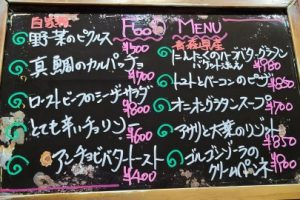 自家製
FOOD MENU
野菜のピクルス
¥500
真鯛のカルパッチョ
¥700
ローストビーフのシーザーサラダ
¥800
とても辛いチョリソー
¥600
アンチョビバタートースト
¥400
青森県産
にんにくの
¥780
トマトとベーコンのピザ
¥850
オニオングラタンスープ
¥700
アサリと大葉のリゾット
¥850
ゴルゴンゾーラの
クリームペンネ
¥900